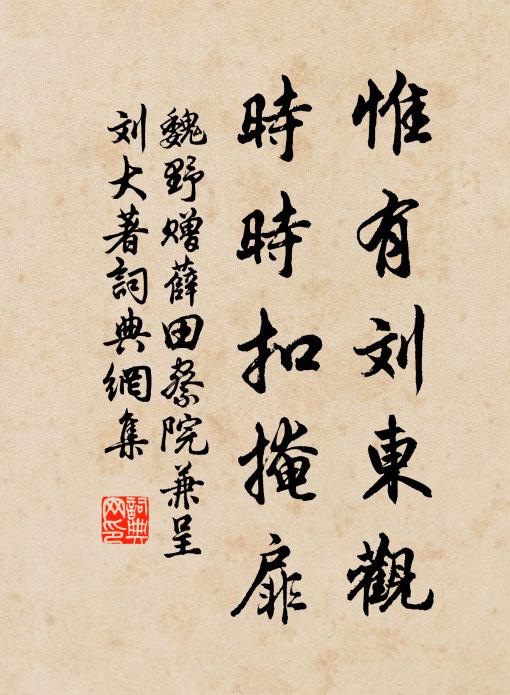 惟有刘東觀
時時扣掩扉
魏野赠薛田察院兼呈
刘大著詞典網集
詞典网印